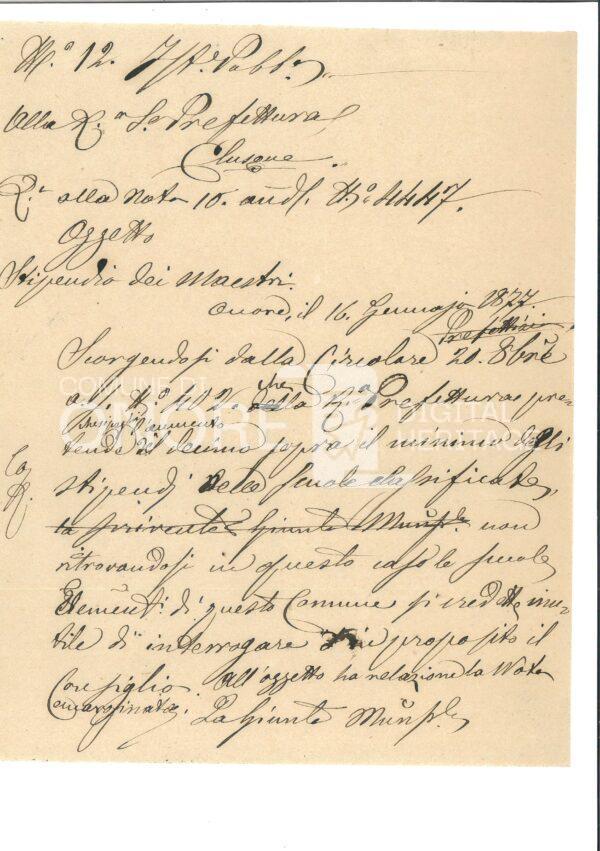 N.° 12. Ist.e Pubb.a
Alla R.a S.e Prefettura
Clusone.
R.a alla Nota 10. and. N.° 4447.
Oggetto
Stipendio dei Maestri.
Onore, il 16. Gennajo 1877.
Prefettizia
Scorgendosi dalla Circolare 20. 8bre
N.° che la R.a Prefettura pre-
che sia fatto l'aumento
tende del decimo sopra il minimo degli
stipendj delle scuole classificate,
la scrivente Giunta Munple. non
ritrovandosi in questo caso le scuole
Element.i di questo Comune si credette inu-
tile di interrogare in proposito il
Consiglio. All'oggetto ha relazione la Nota
emarginata.
La Giunta Munple.
COMUNE DI
ONORE
DIGITAL
HERITAGE